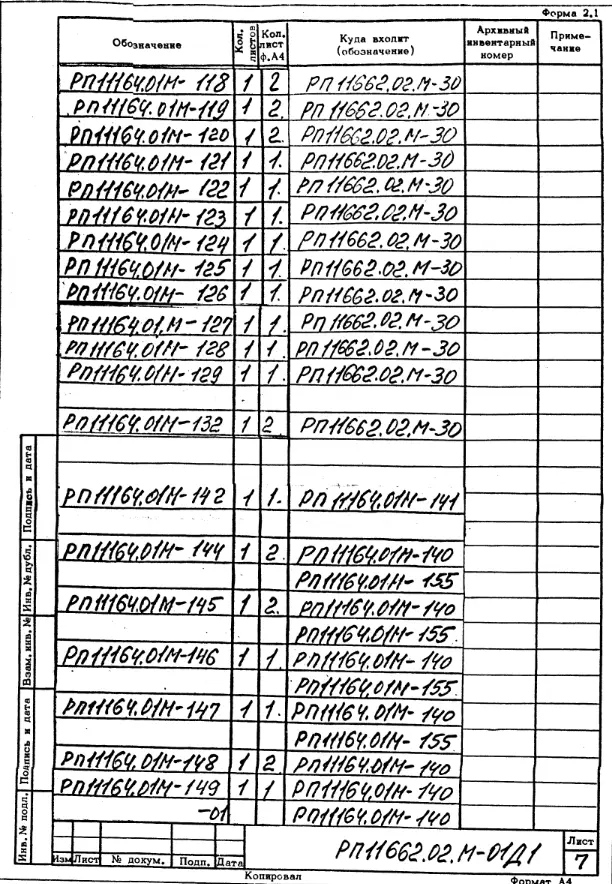 Форма 2.1
Обозначение Кол. листов Кол. лист ф.А4 Куда входит (обозначение) Архивный инвентарный номер Примечание
РП11164.01М-118 1 2 РП11662.02.М-30
РП11164.01М-119 1 2. РП11662.02.М-30
РП11164.01М-120 1 2. РП11662.02.М-30
РП11164.01М-121 1 1. РП11662.02.М-30
РП11164.01М-122 1 1. РП11662.02.М-30
РП11164.01М-123 1 1. РП11662.02.М-30
РП11164.01М-124 1 1. РП11662.02.М-30
РП11164.01М-125 1 1. РП11662.02.М-30
РП11164.01М-126 1 1. РП11662.02.М-30
РП11164.01.М-127 1 1. РП11662.02.М-30
РП11164.01М-128 1 1. РП11662.02.М-30
РП11164.01М-129 1 1. РП11662.02.М-30
РП11164.01М-132 1 2 РП11662.02.М-30
РП11164.01М-142 1 1. РП11164.01М-141
РП11164.01М-144 1 2. РП11164.01М-140
РП11164.01М-155
РП11164.01М-145 1 2. РП11164.01М-140
РП11164.01М-155.
РП11164.01М-146 1 1. РП11164.01М-140
РП11164.01М-155.
РП11164.01М-147 1 1. РП11164.01М-140
РП11164.01М-155
РП11164.01М-148 1 2. РП11164.01М-140
РП11164.01М-149 1 1 РП11164.01М-140
-01 РП11164.01М-140
Подпись и дата
Инв. № дубл.
Взам. инв. №
Подпись и дата
Инв. № подл.
Изм Лист № докум. Подп. Дата
РП11662.02.М-01Д1
Лист
7
Копировал Формат А4